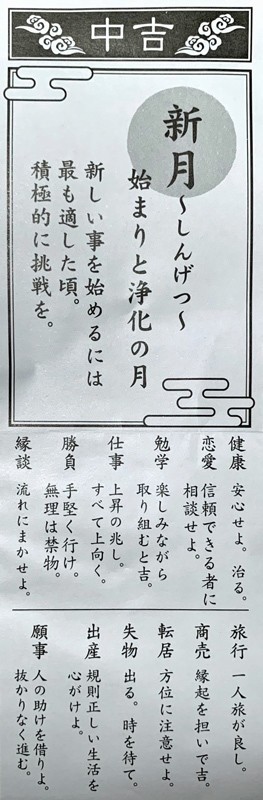 中吉
新月～しんげつ～
始まりと浄化の月
新しい事を始めるには
最も適した頃。
積極的に挑戦を。
健康 安心せよ。治る。
恋愛 信頼できる者に
相談せよ。
勉学 楽しみながら
取り組むと吉。
仕事 上昇の兆し。
すべて上向く。
勝負 手堅く行け。
無理は禁物。
縁談 流れにまかせよ。
旅行 一人旅が良し。
商売 縁起を担いで吉。
転居 方位に注意せよ。
失物 出る。時を待て。
出産 規則正しい生活を
心がけよ。
願事 人の助けを借りよ。
抜かりなく進む。